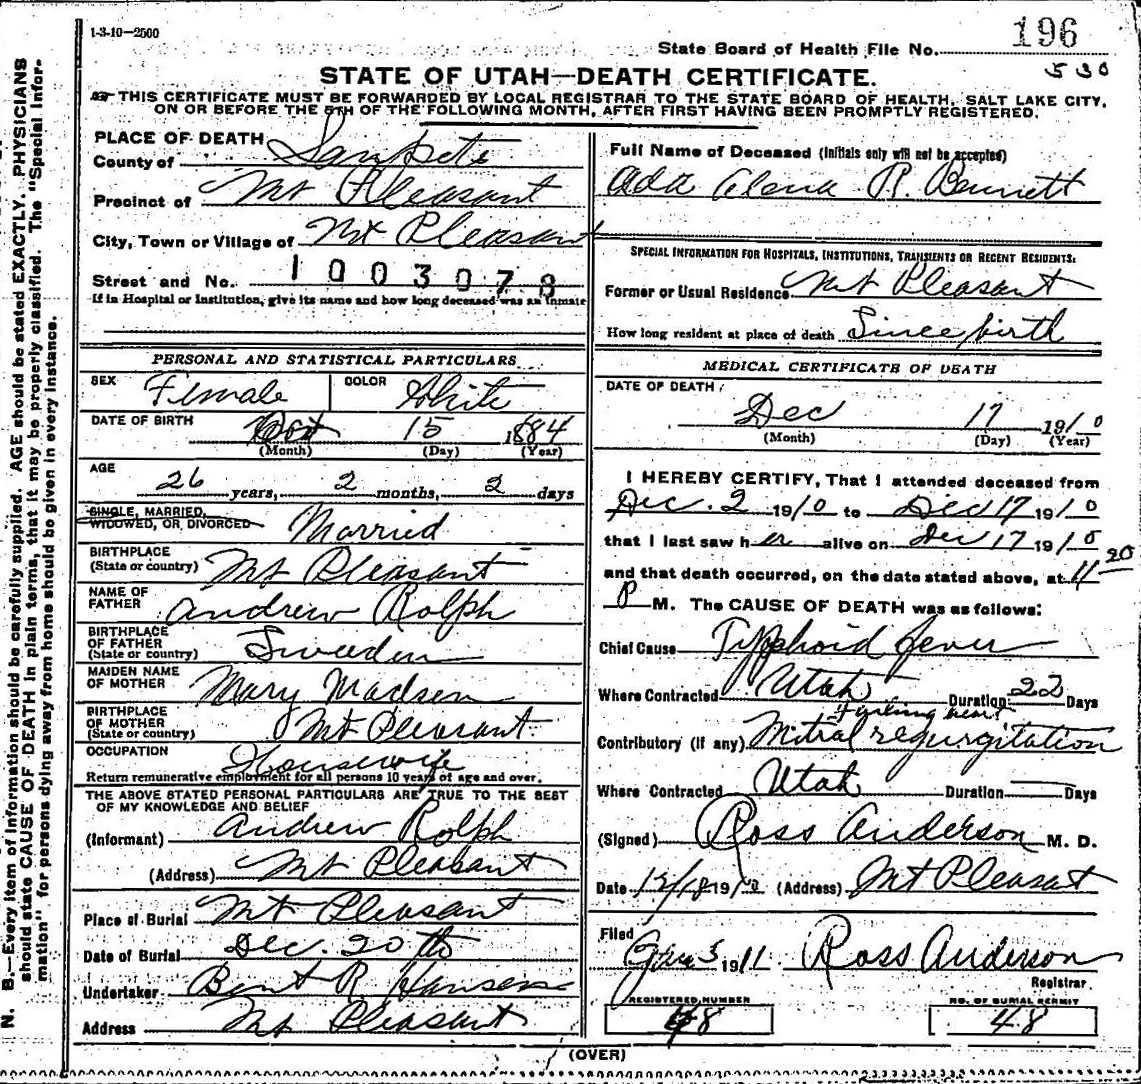 1-3-10—2500
State Board of Health File No. 196
530
STATE OF UTAH—DEATH CERTIFICATE.
THIS CERTIFICATE MUST BE FORWARDED BY LOCAL REGISTRAR TO THE STATE BOARD OF HEALTH, SALT LAKE CITY,
ON OR BEFORE THE 5TH OF THE FOLLOWING MONTH, AFTER FIRST HAVING BEEN PROMPTLY REGISTERED.
PLACE OF DEATH
County of Sanpete
Precinct of Mt Pleasant
City, Town or Village of Mt Pleasant
Street and No. 1003078
If in Hospital or Institution, give its name and how long deceased was an inmate
PERSONAL AND STATISTICAL PARTICULARS
SEX Female COLOR White
DATE OF BIRTH Oct 15 1884
(Month) (Day) (Year)
AGE
26 years, 2 months, 2 days
SINGLE, MARRIED,
WIDOWED, OR DIVORCED Married
BIRTHPLACE
(State or country) Mt Pleasant
NAME OF
FATHER Andrew Rolph
BIRTHPLACE
OF FATHER
(State or country) Sweeden
MAIDEN NAME
OF MOTHER Mary Madsen
BIRTHPLACE
OF MOTHER
(State or country) Mt Pleasant
OCCUPATION Housewife
Return remunerative employment for all persons 10 years of age and over.
THE ABOVE STATED PERSONAL PARTICULARS ARE TRUE TO THE BEST
OF MY KNOWLEDGE AND BELIEF
(Informant) Andrew Rolph
(Address) Mt Pleasant
Place of Burial Mt Pleasant
Date of Burial Dec. 20th
Undertaker Bent R Hansen
Address Mt Pleasant
Full Name of Deceased (Initials only will not be accepted)
Ada Elena R. Bennett
SPECIAL INFORMATION FOR HOSPITALS, INSTITUTIONS, TRANSIENTS OR RECENT RESIDENTS:
Former or Usual Residence Mt Pleasant
How long resident at place of death Since birth
MEDICAL CERTIFICATE OF DEATH
DATE OF DEATH
Dec 17 1910
(Month) (Day) (Year)
I HEREBY CERTIFY, That I attended deceased from
Dec. 2 1910 to Dec 17 1910
that I last saw her alive on Dec 17 1910
and that death occurred, on the date stated above, at 11 20
P M. The CAUSE OF DEATH was as follows:
Chief Cause Typphoid fever
Where Contracted Utah Duration 22 Days
Contributory (if any) Mitral regurgitation
Where Contracted Utah Duration Days
(Signed) Ross Anderson M. D.
Date 12/18 1910 (Address) Mt Pleasant
Filed
Jan 5 1911 Ross Anderson
Registrar.
REGISTERED NUMBER
48
NO. OF BURIAL PERMIT
48
(OVER)
N. B.—Every item of information should be carefully supplied. AGE should be stated EXACTLY. PHYSICIANS
should state CAUSE OF DEATH in plain terms, that it may be properly classified. The "Special Infor-
mation" for persons dying away from home should be given in every instance.